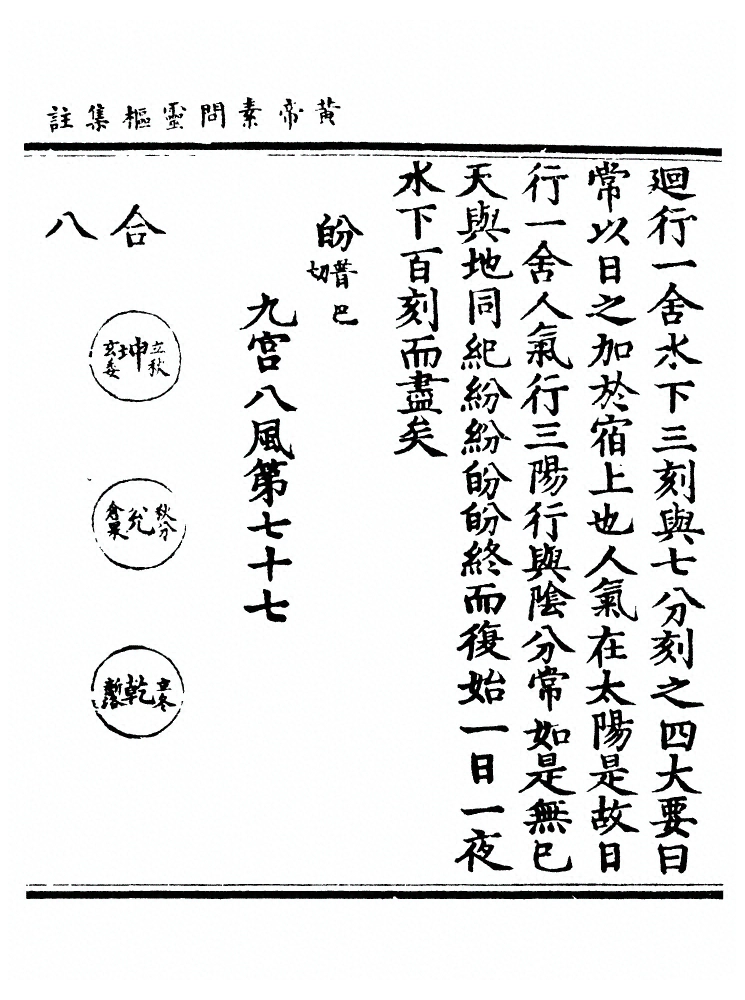 黃帝素問靈樞集註
廻行一舍水下三刻與七分刻之四大要曰
常以日之加於宿上也人氣在太陽是故日
行一舍人氣行三陽行與陰分常如是無已
天與地同紀紛紛盼盼終而復始一日一夜
水下百刻而盡矣
盼普巴切
九宮八風第七十七
合八
立秋坤玄委
秋分兊倉果
立冬乾新洛